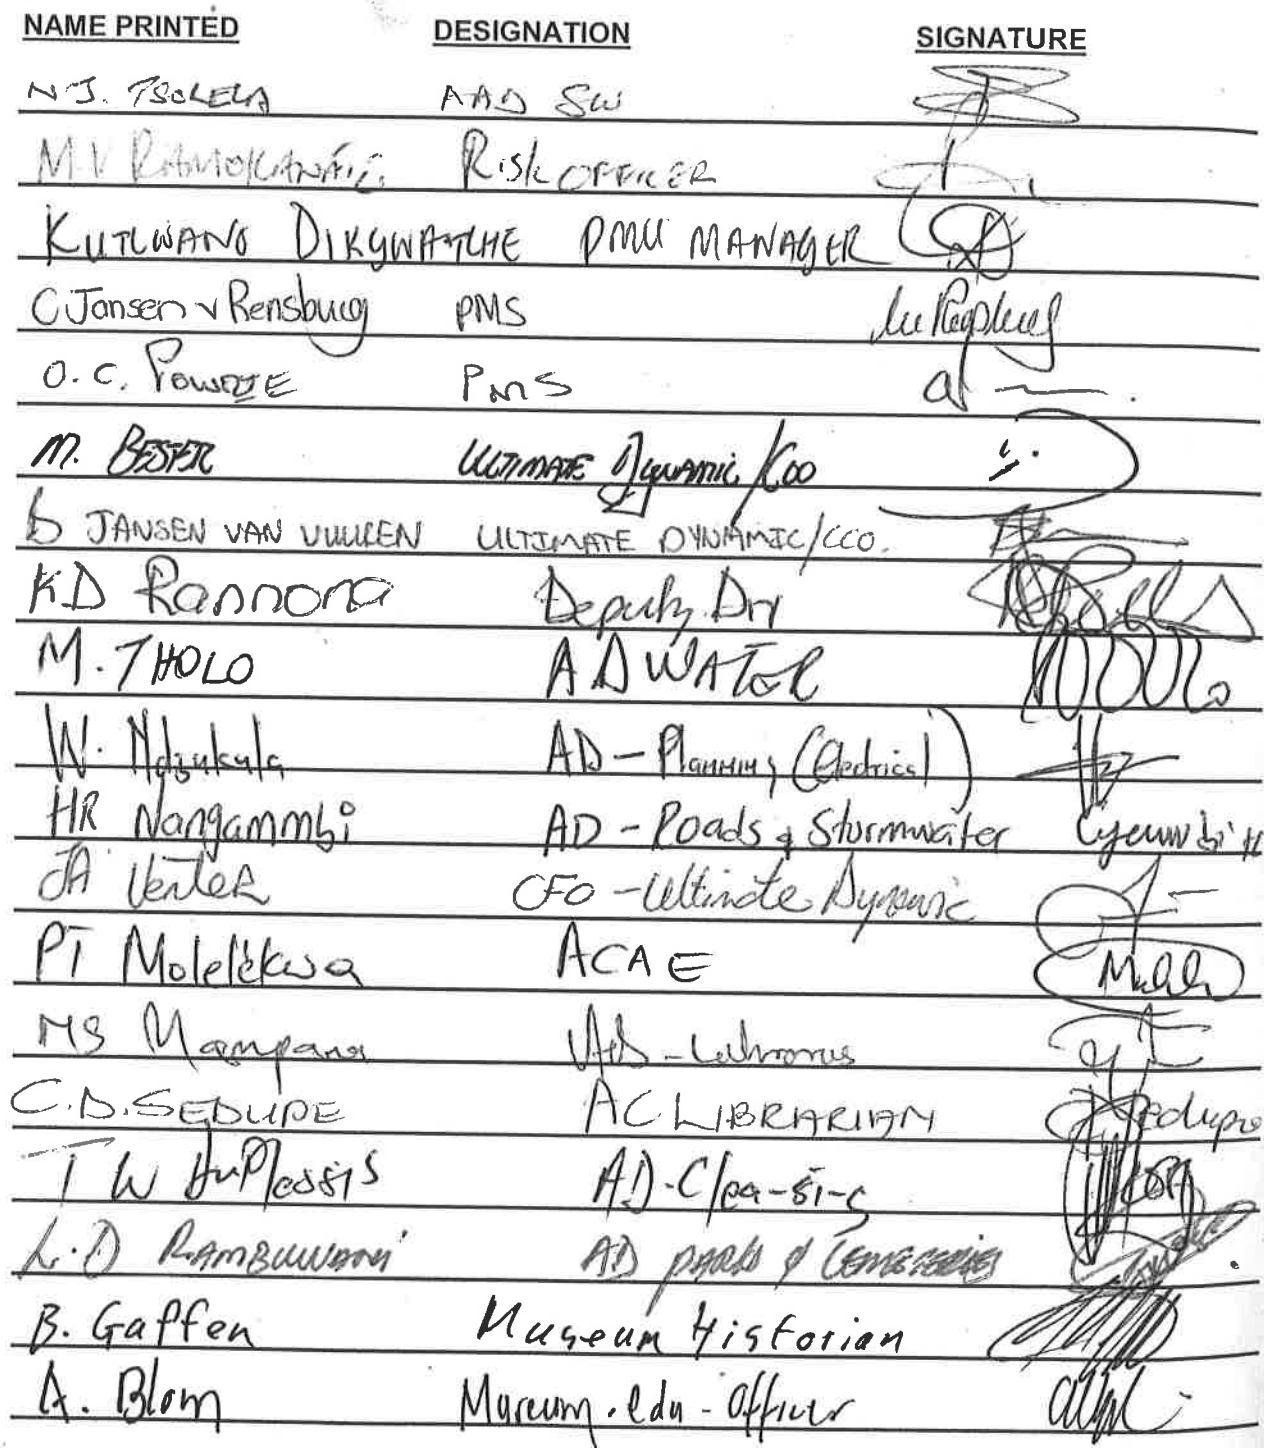 NAME PRINTED DESIGNATION SIGNATURE
N.J. TSOLELA AAD SW
M.V RAMOKANATE RISK OFFICER
KUTLWANO DIKGWATLHE PMU MANAGER
C Jansen v Rensburg PMS
O.C. POWRIE PMS
M. BESTER ULTIMATE DYNAMIC/COO
B JANSEN VAN VUUREN ULTIMATE DYNAMIC/CCO.
KD Rannona Deputy Dir
M. THOLO AD WATER
W. Ndzukula AD - Planning (Electrical)
HR Nangammbi AD - Roads & Stormwater
JA Venter CFO - Ultimate Dynamic
PT Molelekwa ACAE
MS Mampana
C.D. SEDUPE AC LIBRARIAN
T W duPlessis AD-Cleansing
L.D RAMBUWANI AD PARKS & CEMETERIES
B. Gaffen Museum Historian
A. Blom Museum. edu - Officer